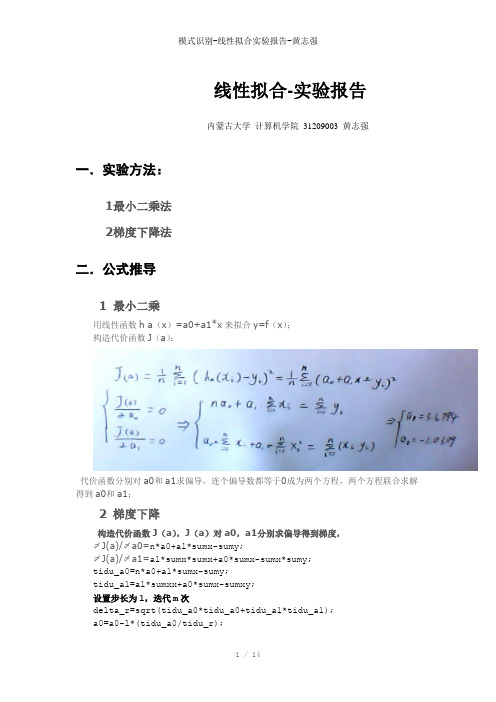 模式识别-线性拟合实验报告-黄志强
线性拟合-实验报告
内蒙古大学 计算机学院 31209003 黄志强
一．实验方法：
1最小二乘法
2梯度下降法
二．公式推导
1 最小二乘
用线性函数 h a（x）=a0+a1*x 来拟合 y=f（x）；
构造代价函数 J（a）；
J(a) = 1/n Σ(i=1..n) (ha(xi)-yi)² = 1/n Σ(i=1..n) (a0+a1x-yi)²
J(a)/∂a0 = 0
J(a)/∂a1 = 0
⇒ na0 + a1·Σxi = Σyi
Σxi² = Σ(xi yi)
⇒
代价函数分别对 a0和 a1求偏导，连个偏导数都等于0成为两个方程，两个方程联合求解
得到 a0和 a1；
2 梯度下降
构造代价函数 J（a），J（a）对 a0，a1分别求偏导得到梯度，
∂J(a)/∂a0=n*a0+a1*sumx-sumy;
∂J(a)/∂a1=a1*sumx*sumx+a0*sumx-sumx*sumy;
tidu_a0=n*a0+a1*sumx-sumy;
tidu_a1=a1*sumxx+a0*sumx-sumxy;
设置步长为 l，迭代 m 次
delta_r=sqrt(tidu_a0*tidu_a0+tidu_a1*tidu_a1);
a0=a0-l*(tidu_a0/tidu_r);
1 / 14